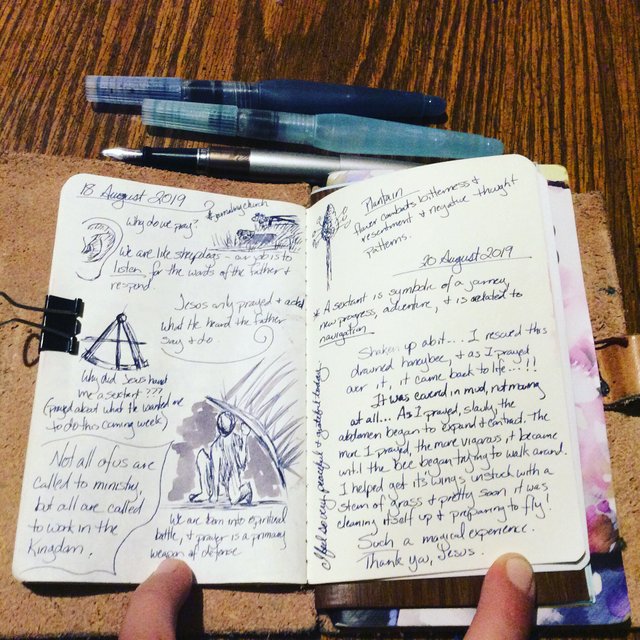 18 August 2019
* journaling church
Why do we pray?
We are like sheepdogs - our job is to
listen for the words of the Father &
respond.
Jesus only prayed & acted
what He heard the Father
say & do.
Why did Jesus hand
me a sextant???
(prayed about what He wanted me
to do this coming week)
Not all of us are
called to ministry,
but all are called
to work in the
Kingdom.
We are born into spiritual
battle, & prayer is a primary
weapon of defense
Plantain
flower combats bitterness &
resentment & negative thought
patterns.
20 August 2019
* A sextant is symbolic of a journey,
new progress, adventure, & is related to
navigation.
Shaken up a bit... I rescued this
drowned honeybee, & as I prayed
over it, it came back to life...!!
It was covered in mud, not moving
at all... As I prayed, slowly, the
abdomen began to expand & contract. The
more I prayed, the more vigorous, it became
until the bee began trying to walk around.
I helped get its wings unstuck with a
stem of grass & pretty soon it was
cleaning itself up & preparing to fly!
Such a magical experience.
Thank you, Jesus.
I feel so very peaceful & grateful today.